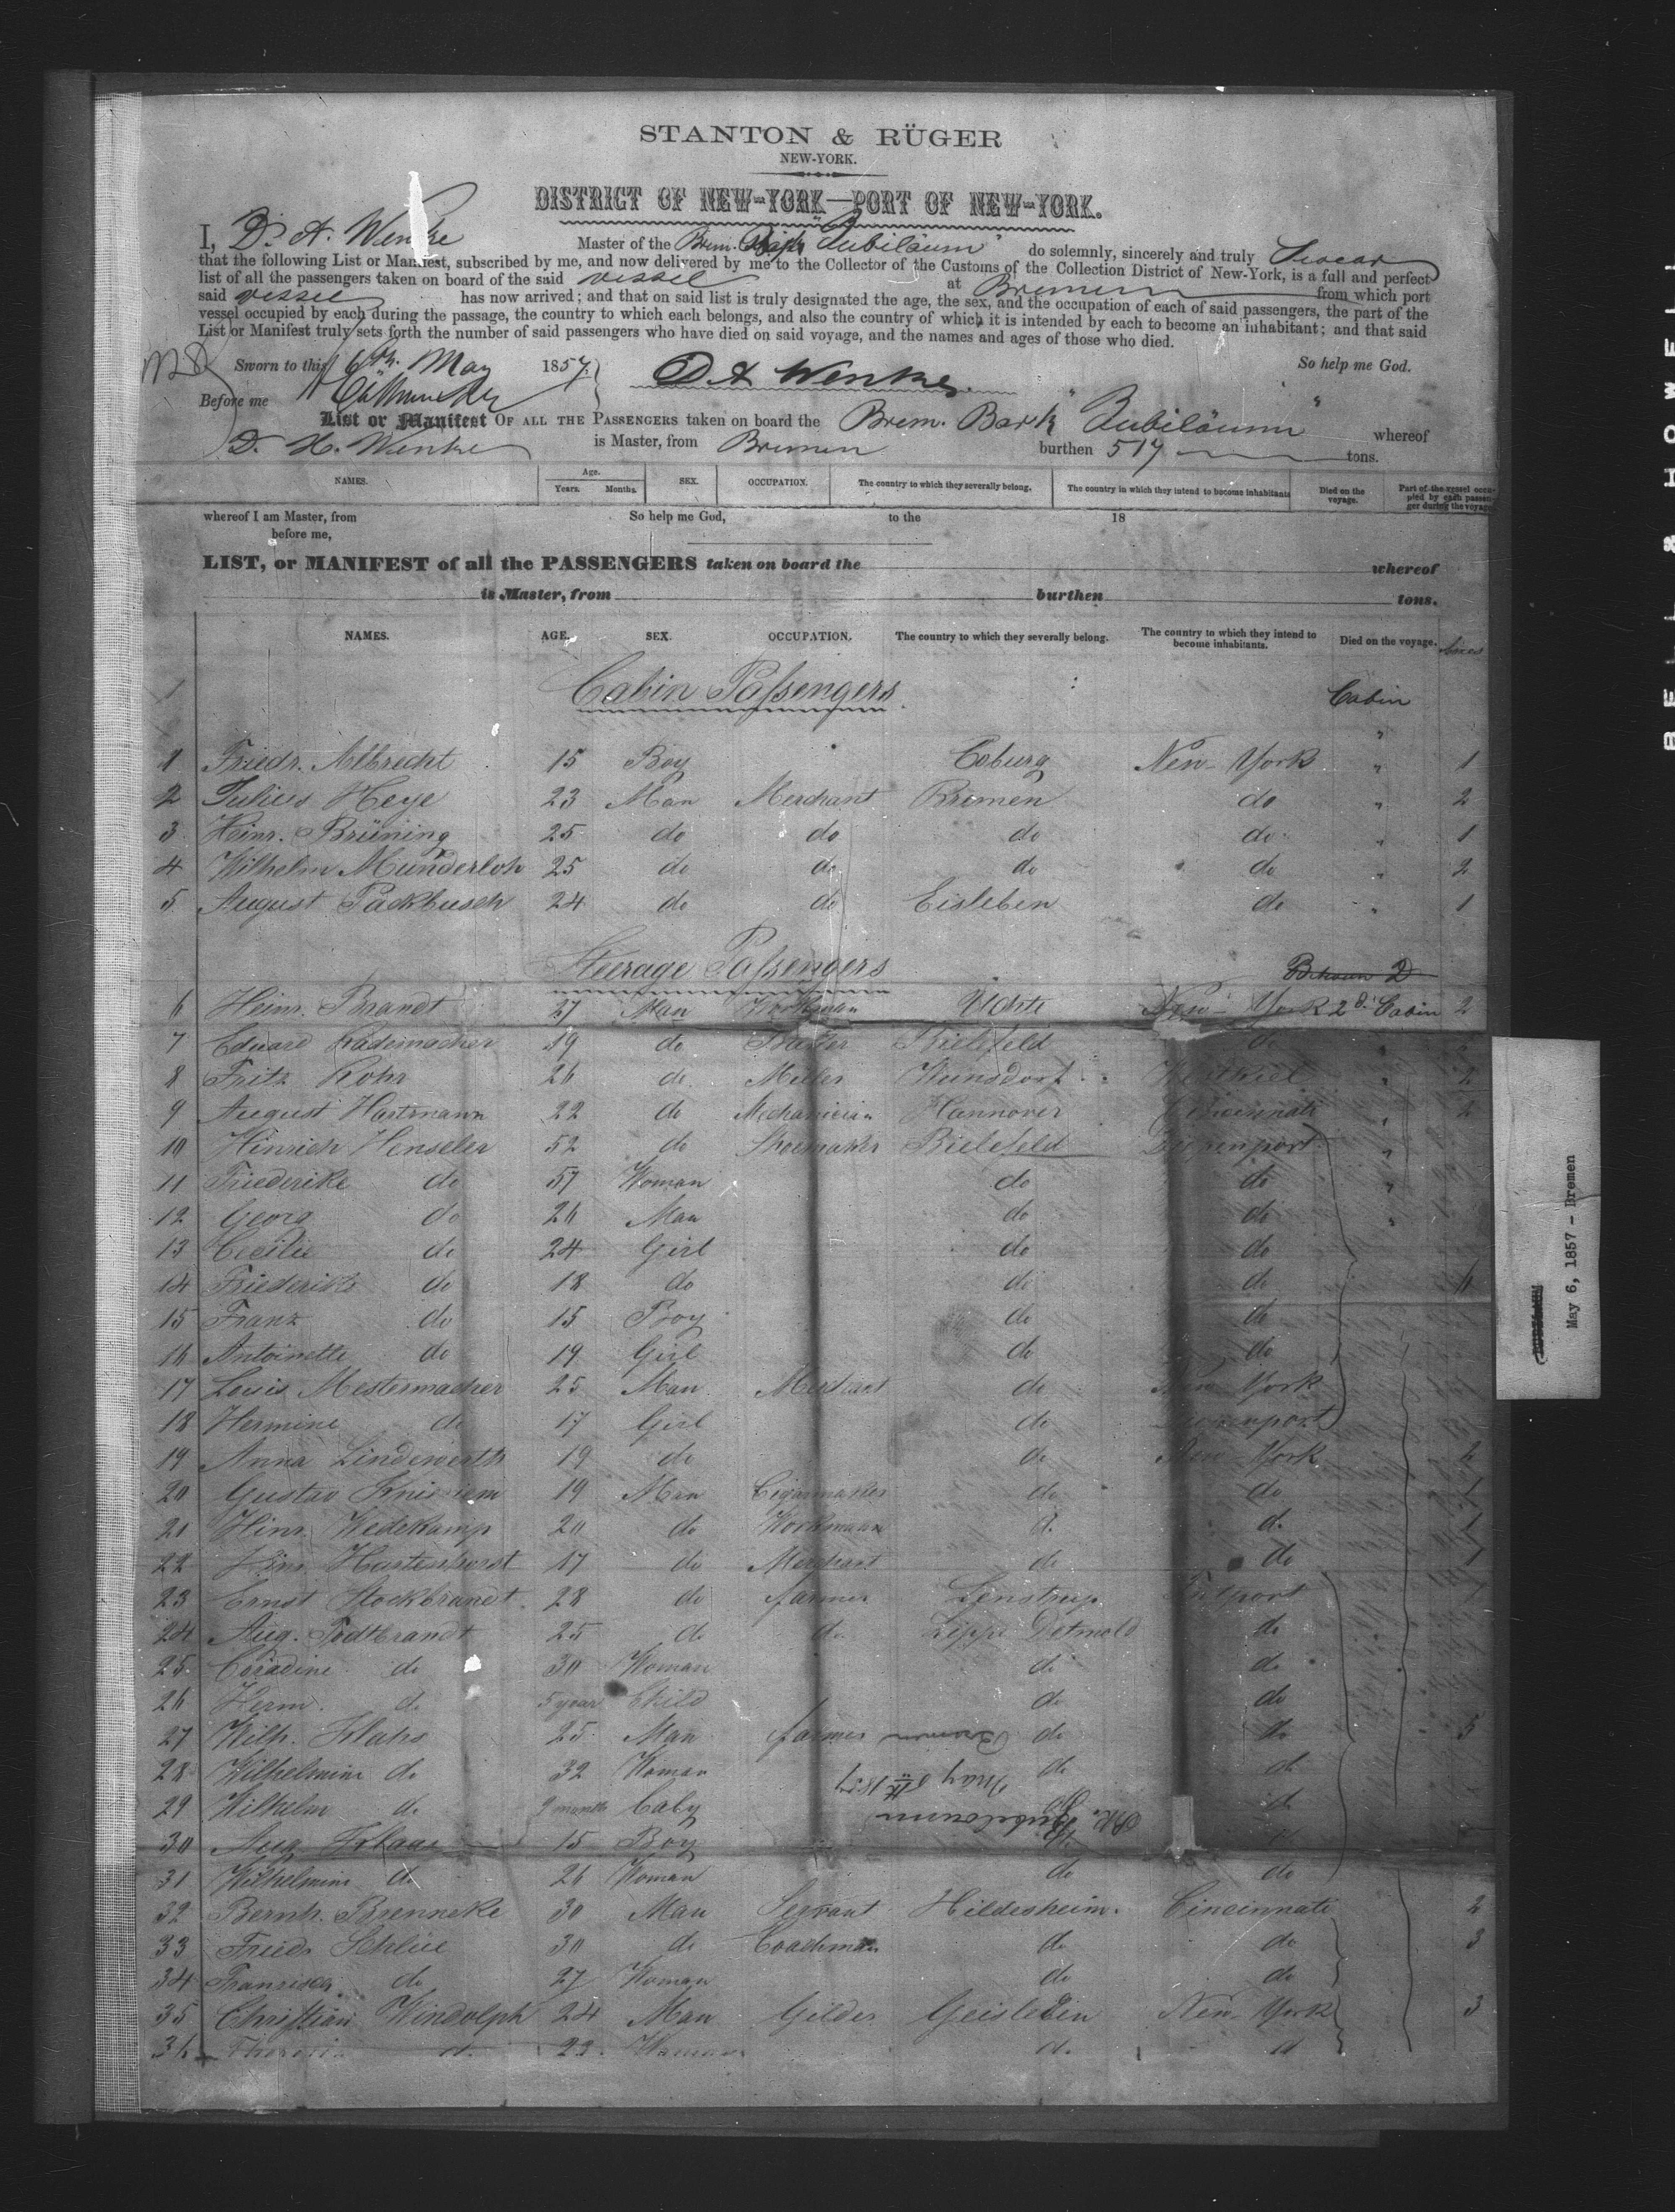 STANTON & RÜGER
NEW-YORK.
DISTRICT OF NEW-YORK—PORT OF NEW-YORK.
I, D. H. Wenke Master of the Brem. Bark "Jubiläum" do solemnly, sincerely and truly Swear
that the following List or Manifest, subscribed by me, and now delivered by me to the Collector of the Customs of the Collection District of New-York, is a full and perfect
list of all the passengers taken on board of the said vessel at Bremen from which port
said vessel has now arrived; and that on said list is truly designated the age, the sex, and the occupation of each of said passengers, the part of the
vessel occupied by each during the passage, the country to which each belongs, and also the country of which it is intended by each to become an inhabitant; and that said
List or Manifest truly sets forth the number of said passengers who have died on said voyage, and the names and ages of those who died.
So help me God.
Sworn to this 6th. May 1857. D H Wenke.
Before me
List or Manifest OF ALL THE PASSENGERS taken on board the Brem. Bark "Jubiläum" whereof
D. H. Wenke is Master, from Bremen burthen 517 tons.
NAMES. Age. Years. Months. SEX. OCCUPATION. The country to which they severally belong. The country in which they intend to become inhabitants Died on the voyage. Part of the vessel occupied by each passenger during the voyage
whereof I am Master, from So help me God, to the 18
before me,
LIST, or MANIFEST of all the PASSENGERS taken on board the whereof
is Master, from burthen tons.
NAMES. AGE. SEX. OCCUPATION. The country to which they severally belong. The country to which they intend to become inhabitants. Died on the voyage.
Cabin Passengers. Cabin
1 Friedr. Albrecht 15 Boy Coburg New-York " 1
2 Julius Heye 23 Man Merchant Bremen do " 2
3 Heinr. Brüning 25 do do do do " 1
4 Wilhelm Munderloh 25 do do do do " 2
5 August Packbusch 24 do do Eisleben do " 1
Steerage Passengers
6 Heinr. Brandt 27 Man Workman Vlohte New-York 2d. Cabin 2
7 Eduard Rademacher 19 do Bielefeld do
8 Fritz Rohr 26 do Miller Wunsdorf 2
9 August Hartmann 22 do Mechanician Hannover Cincinnati " 2
10 Hinrich Henseler 52 do Shoemaker Bielefeld Davenport "
11 Friederike do 57 Woman do do "
12 Georg do 26 Man do do "
13 Cecilie do 24 Girl do do
14 Friederike do 18 do do do
15 Franz do 15 Boy do do
16 Antoinette do 19 Girl do do
17 Louis Mestermacher 25 Man Merchant do New York
18 Hermine do 17 Girl do Davenport
19 Anna Lindewerth 19 do do New York
20 Gustav Knieriem 19 Man Cigarmaker do do 1
21 Hinr. Wedekamp 20 do Workmann d. d. 1
22 Hinr. Hartenhorst 17 do Merchant do do 1
23 Ernst Stockbrandt. 28 do farmer
24 Aug. Todtbrandt 25 do do Lippe Detmold do
25 do 30 Woman do do
26 Herm. do 5 year Child do do
27 Wilh. 25 Man farmer do do 5
28 Wilhelmine do 32 Woman do do
29 Wilhelm do 9 months baby do d.
30 Aug. 15 Boy
31 Wilhelmine do 26 Woman do do
32 Bernh. Brenneke 30 Man Servant Hildesheim. Cincinnati 2
33 Friedr Schlüe 30 do Coachman do do 3
34 Franzisca do 27 Woman do do
35 Christian Windolph 24 Man Gilder Geisleden New-York 3
36 d. 23. Woman d. d
Bremen
May 6th 1857
May 6, 1857 - Bremen